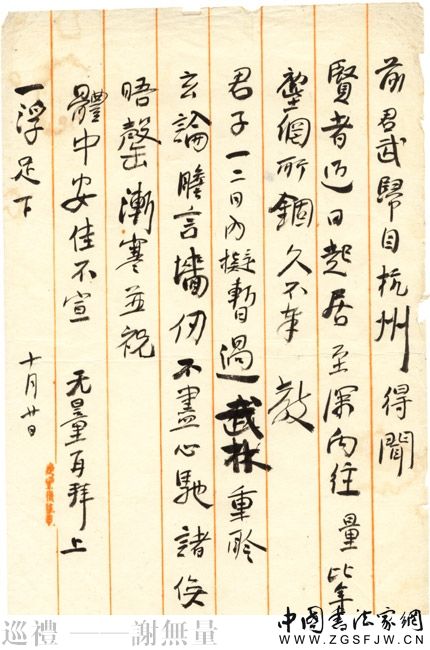 前君武歸自杭州得聞
賢者近日起居至深向往量比年
塵網所錮久不奉教
君子一二日內擬暫過武林重聆
玄論瞻言墻仞不盡心馳諸俟
晤罄漸寒並祝
體中安佳不宣 无量再拜上
一浮足下 十月廿日
巡禮 ——謝無量
中國書法家網
WWW.ZGSFJW.CN